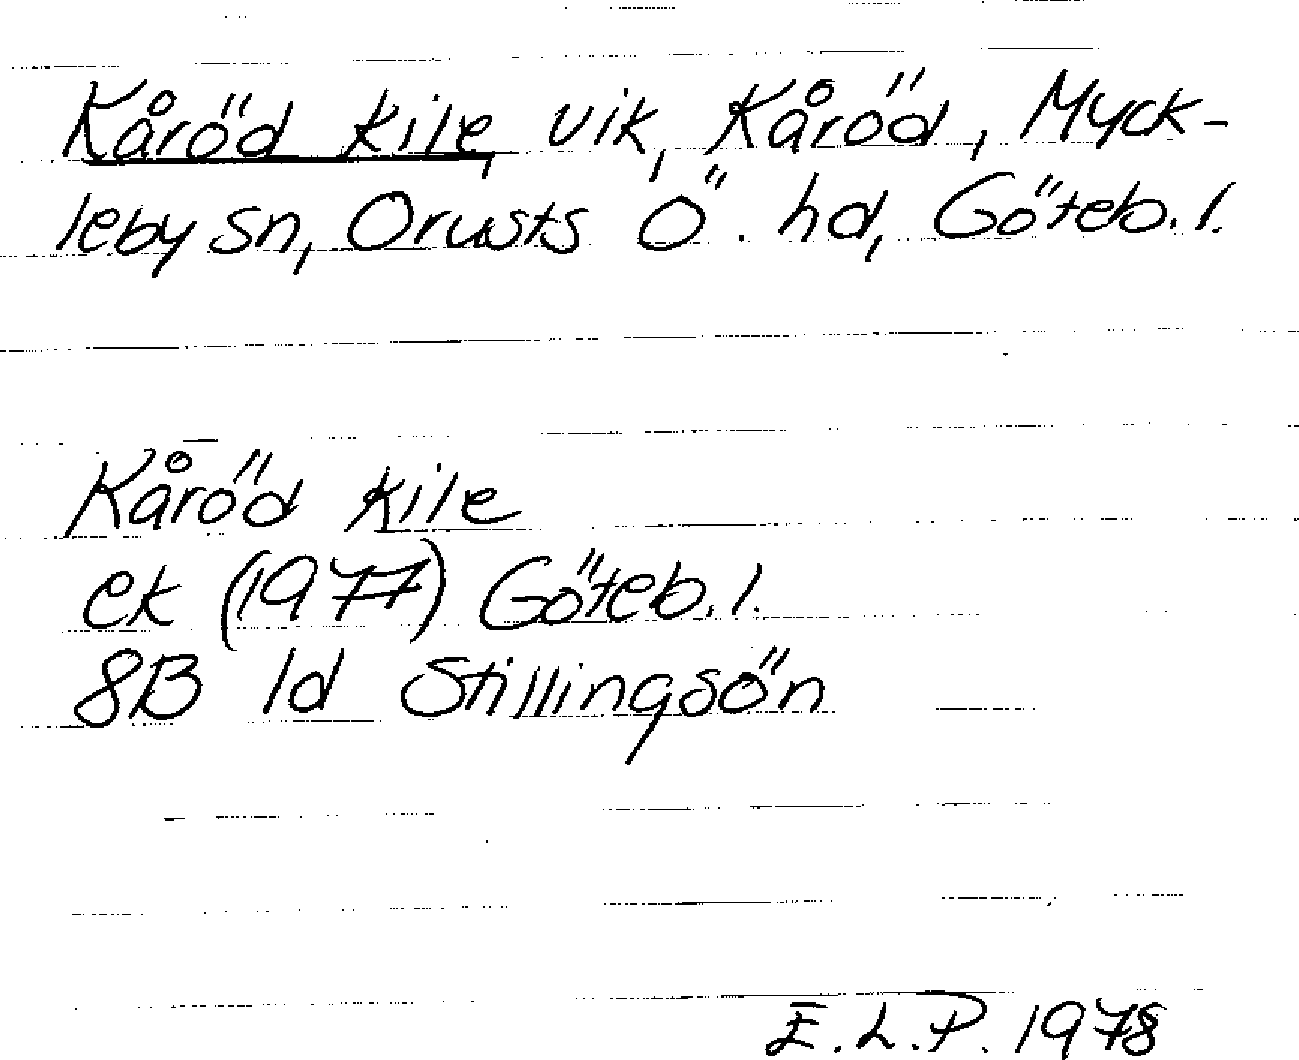 Kåröd kile, vik, Kåröd, Myck-
leby sn, Orusts Ö. hd, Göteb. l.
Kåröd kile
ek (1977) Göteb. l.
8B 1d Stillingsön
E.L.P. 1978